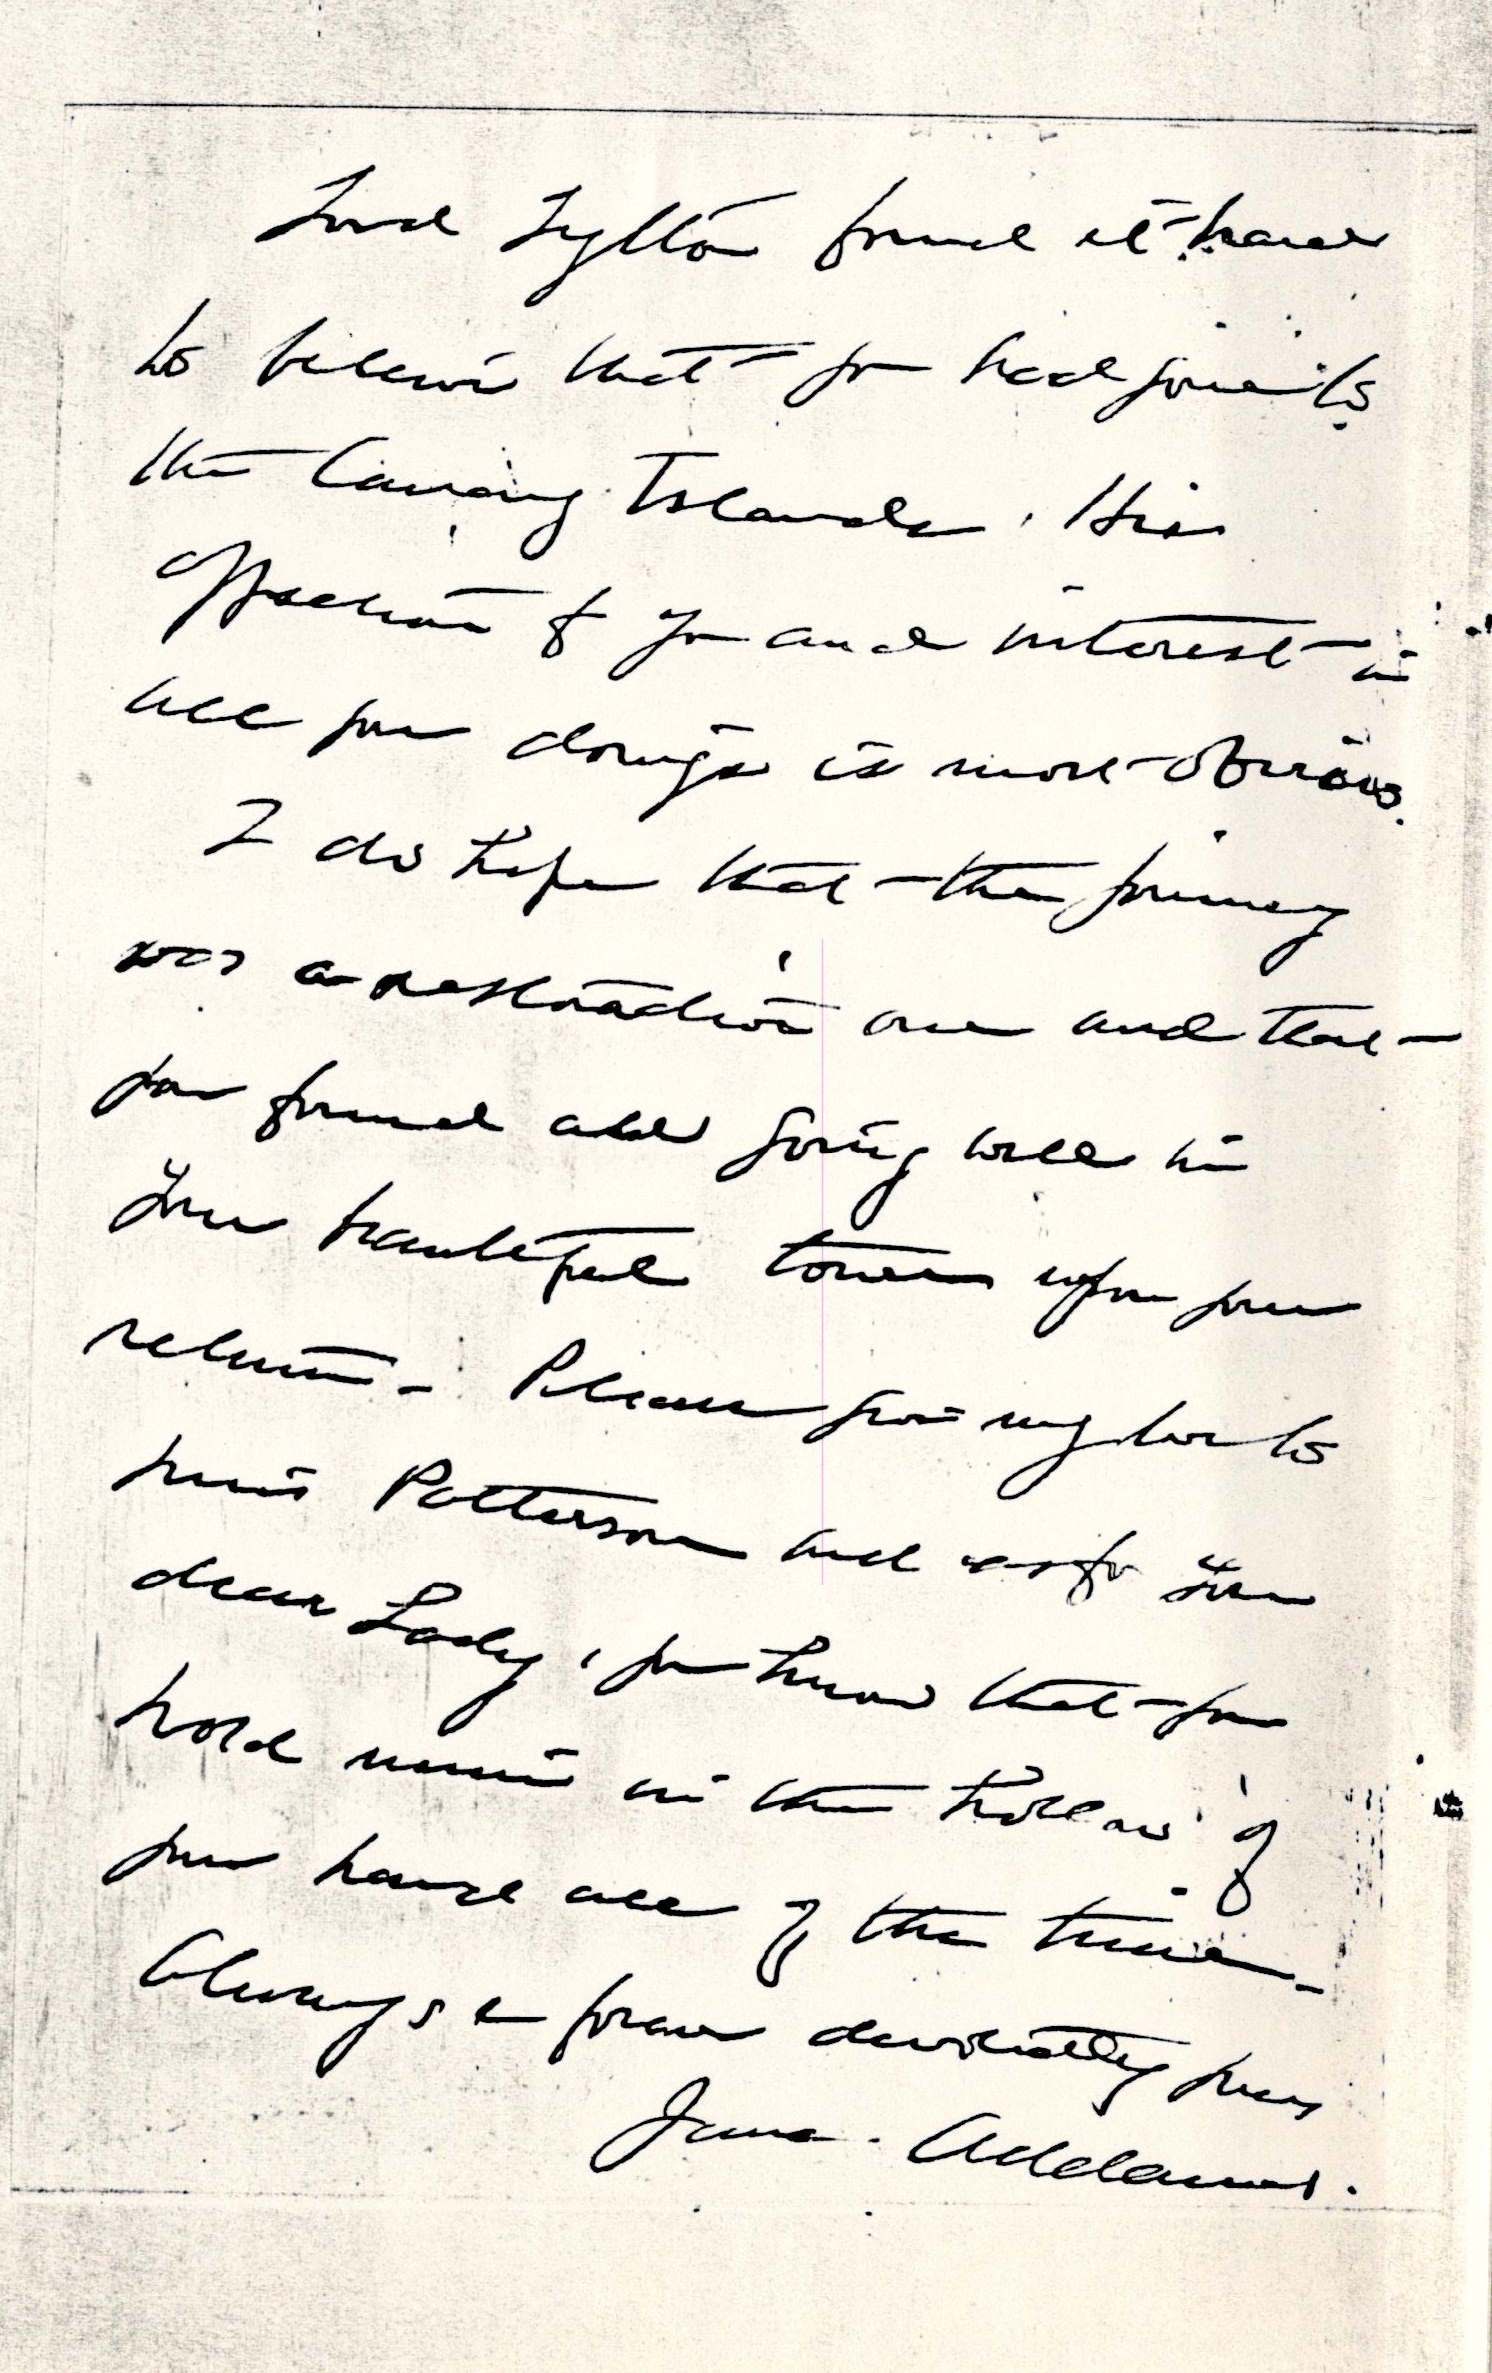 Lord Lytton found it hard
to believe that you had gone to
the Canary Islands. His
affection for you and interest in
all your doings is most obvious.
I do hope that the journey
was a restoration one and that
you found all going well in
your beautiful tower upon your
return – Please give my love to
Miss Patterson and as for you
dear Lady, you know that you
hold mine in the hollow of
your hand all of the time –
Always & forever devotedly yours
Jane Addams.